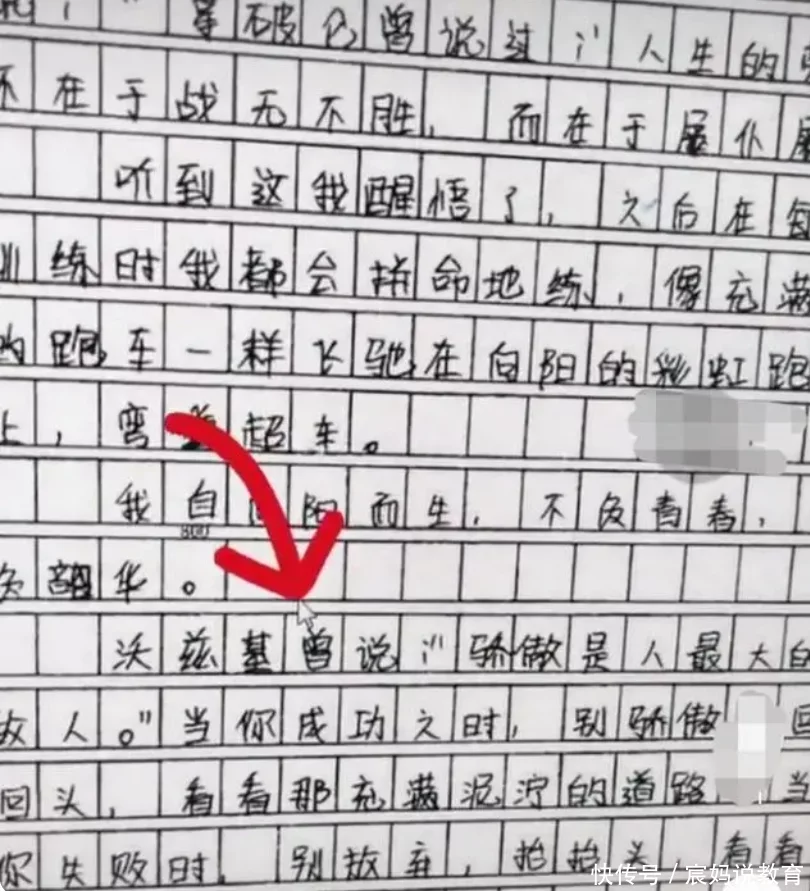 拿破仑曾说过:"人生的
不在于战无不胜,而在于屡仆屡
听到这我醒悟了,之后在每
训练时我都会拼命地练,像充满
的跑车一样飞驰在向阳的彩虹跑
上,弯道超车。
我自向阳而生,不负青春,
800
负韶华。
沃兹基曾说:"骄傲是人最大的
敌人。"当你成功之时,别骄傲 回
回头,看看那充满泥泞的道路 当
你失败时,别放弃,抬抬头 看看
快传号/宸妈说教育